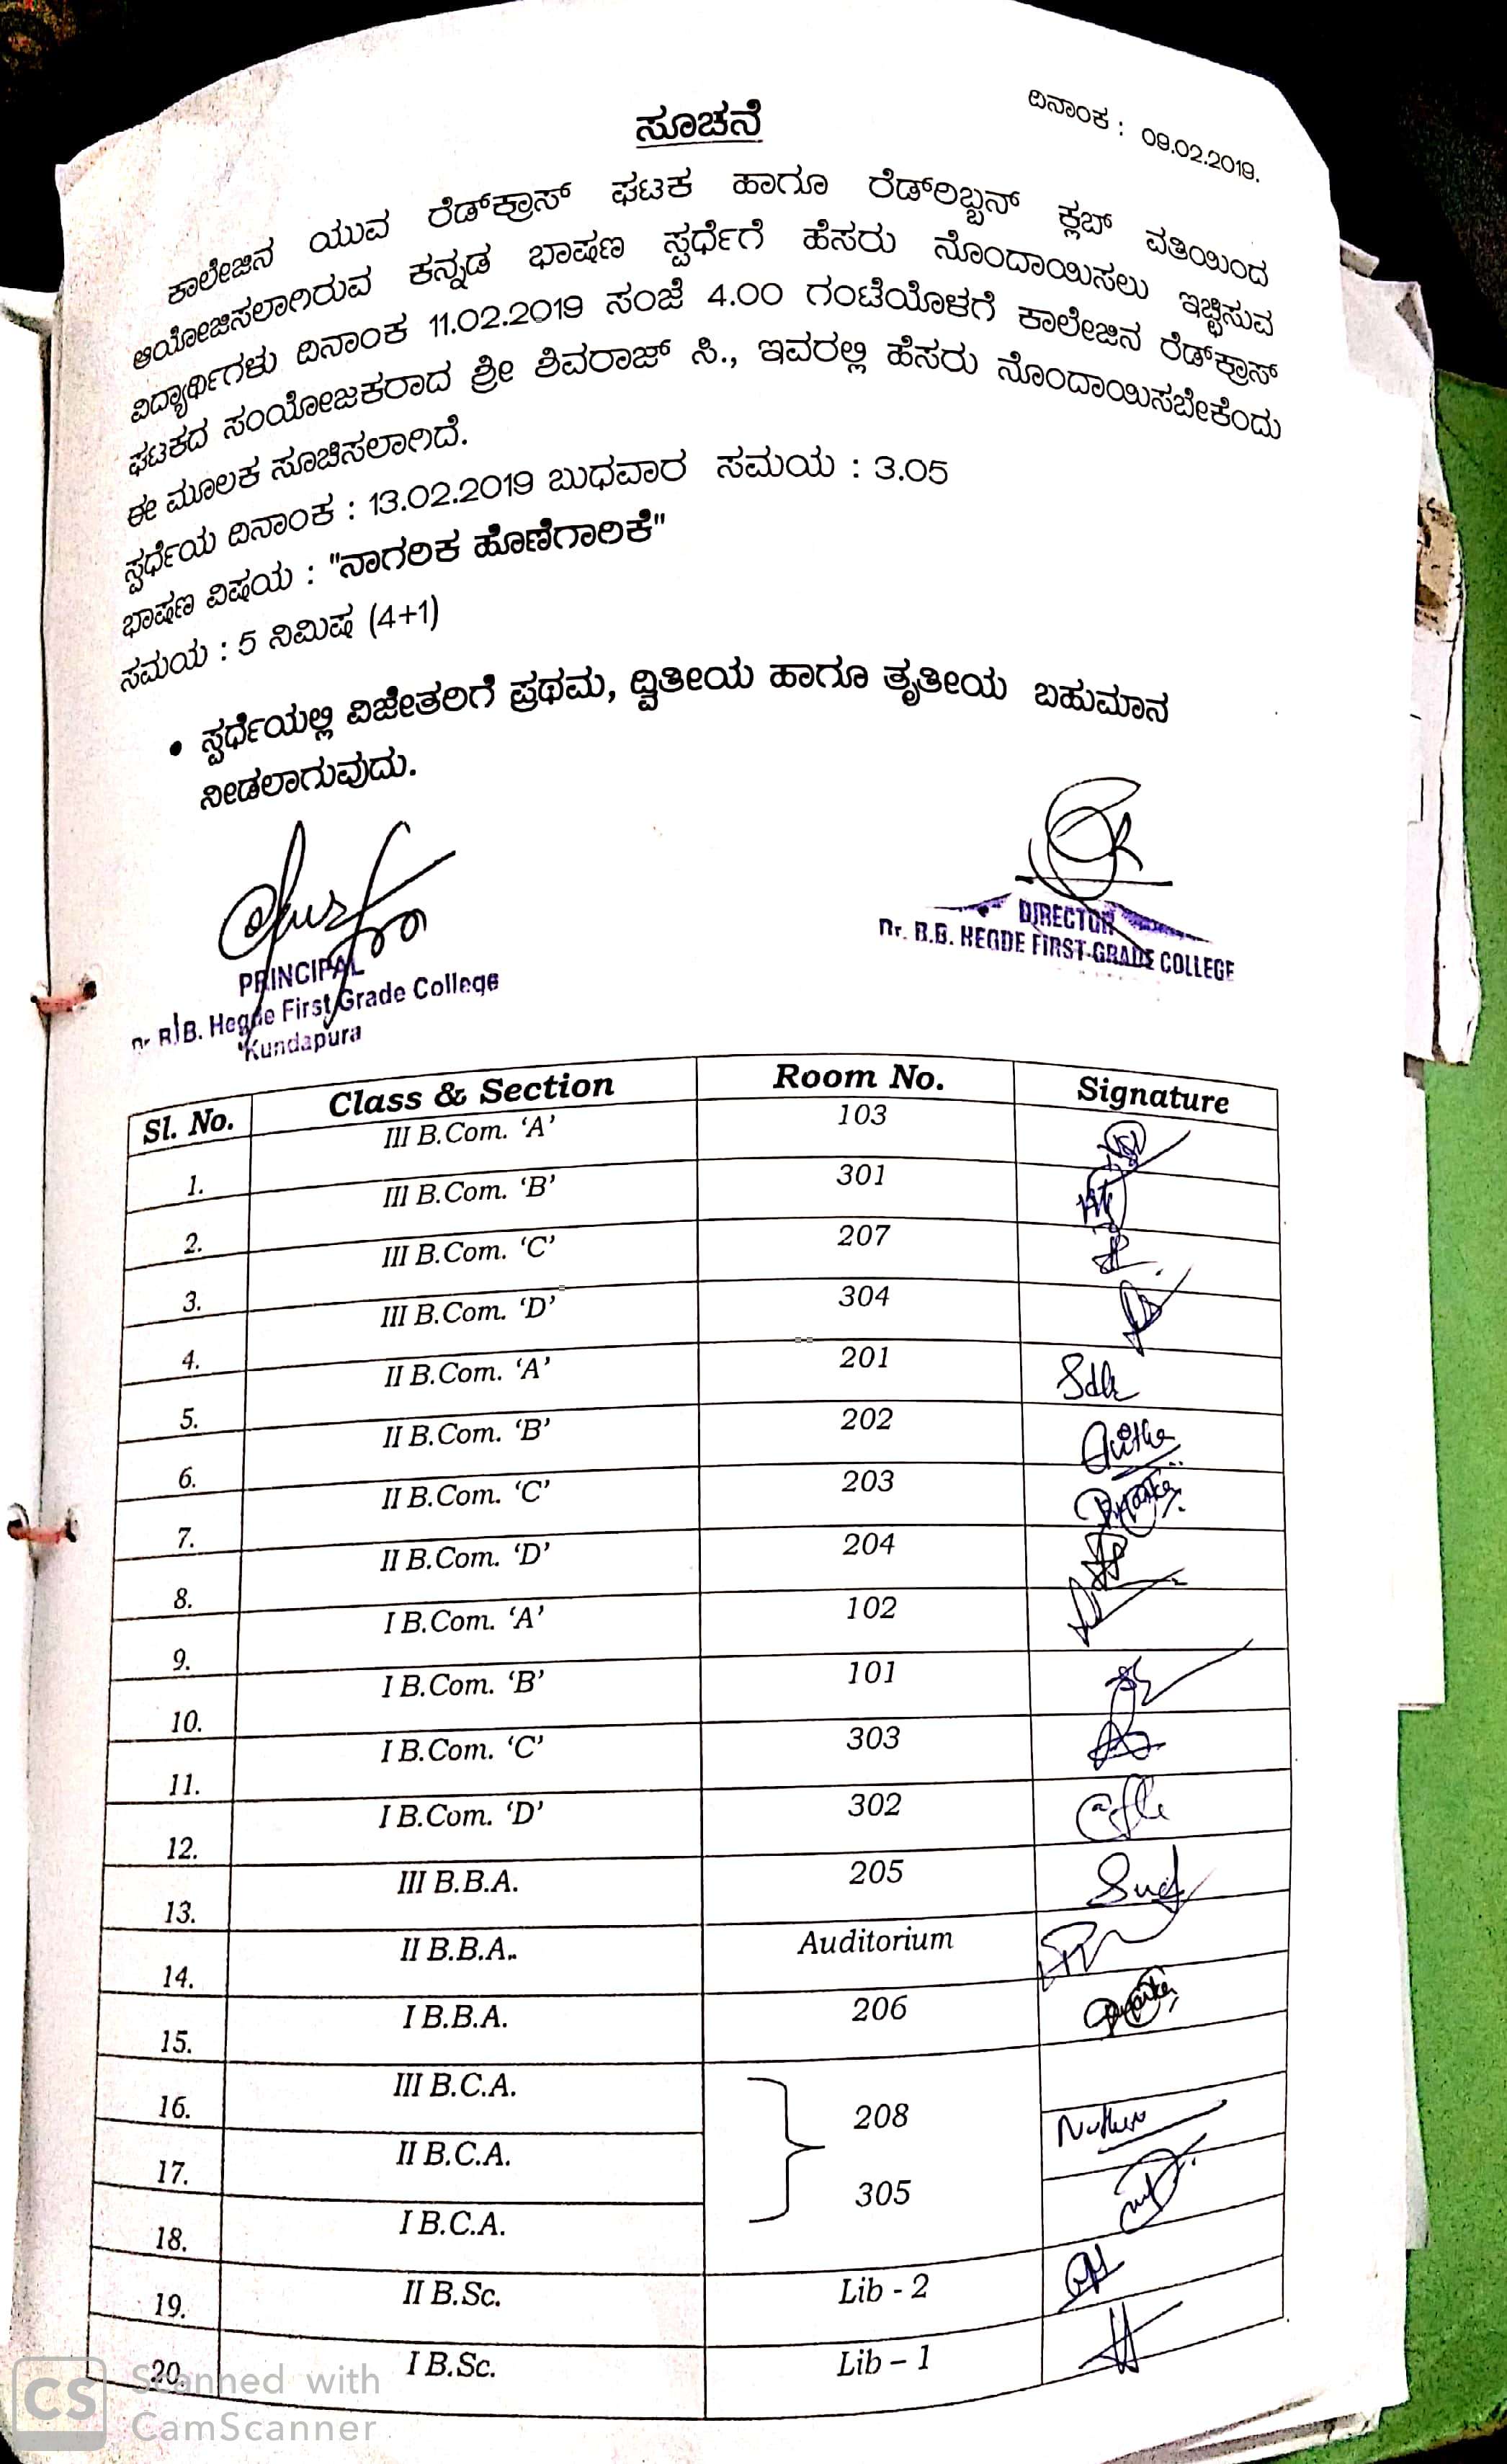 ಸೂಚನೆ
ದಿನಾಂಕ : 09.02.2019.
ಕಾಲೇಜಿನ ಯುವ ರೆಡ್‌ಕ್ರಾಸ್ ಘಟಕ ಹಾಗೂ ರೆಡ್‌ರಿಬ್ಬನ್ ಕ್ಲಬ್ ವತಿಯಿಂದ
ಆಯೋಜಿಸಲಾಗಿರುವ ಕನ್ನಡ ಭಾಷಣ ಸ್ಪರ್ಧೆಗೆ ಹೆಸರು ನೊಂದಾಯಿಸಲು ಇಚ್ಛಿಸುವ
ವಿದ್ಯಾರ್ಥಿಗಳು ದಿನಾಂಕ 11.02.2019 ಸಂಜೆ 4.00 ಗಂಟೆಯೊಳಗೆ ಕಾಲೇಜಿನ ರೆಡ್‌ಕ್ರಾಸ್
ಘಟಕದ ಸಂಯೋಜಕರಾದ ಶ್ರೀ ಶಿವರಾಜ್ ಸಿ., ಇವರಲ್ಲಿ ಹೆಸರು ನೊಂದಾಯಿಸಬೇಕೆಂದು
ಈ ಮೂಲಕ ಸೂಚಿಸಲಾಗಿದೆ.
ಸ್ಪರ್ಧೆಯ ದಿನಾಂಕ : 13.02.2019 ಬುಧವಾರ ಸಮಯ : 3.05
ಭಾಷಣ ವಿಷಯ : "ನಾಗರಿಕ ಹೊಣೆಗಾರಿಕೆ"
ಸಮಯ : 5 ನಿಮಿಷ (4+1)
• ಸ್ಪರ್ಧೆಯಲ್ಲಿ ವಿಜೇತರಿಗೆ ಪ್ರಥಮ, ದ್ವಿತೀಯ ಹಾಗೂ ತೃತೀಯ ಬಹುಮಾನ
ನೀಡಲಾಗುವುದು.
PRINCIPAL
Dr. B.B. Hegde First Grade College
Kundapura
DIRECTOR
Dr. B.B. HEGDE FIRST GRADE COLLEGE
Sl. No. Class & Section Room No. Signature
1. III B.Com. ‘A’ 103
2. III B.Com. ‘B’ 301
3. III B.Com. ‘C’ 207
4. III B.Com. ‘D’ 304
5. II B.Com. ‘A’ 201
6. II B.Com. ‘B’ 202
7. II B.Com. ‘C’ 203
8. II B.Com. ‘D’ 204
9. I B.Com. ‘A’ 102
10. I B.Com. ‘B’ 101
11. I B.Com. ‘C’ 303
12. I B.Com. ‘D’ 302
13. III B.B.A. 205
14. II B.B.A.. Auditorium
15. I B.B.A. 206
16. III B.C.A. 208
17. II B.C.A.
18. I B.C.A. 305
19. II B.Sc. Lib - 2
20. I B.Sc. Lib – 1
CS Scanned with
CamScanner